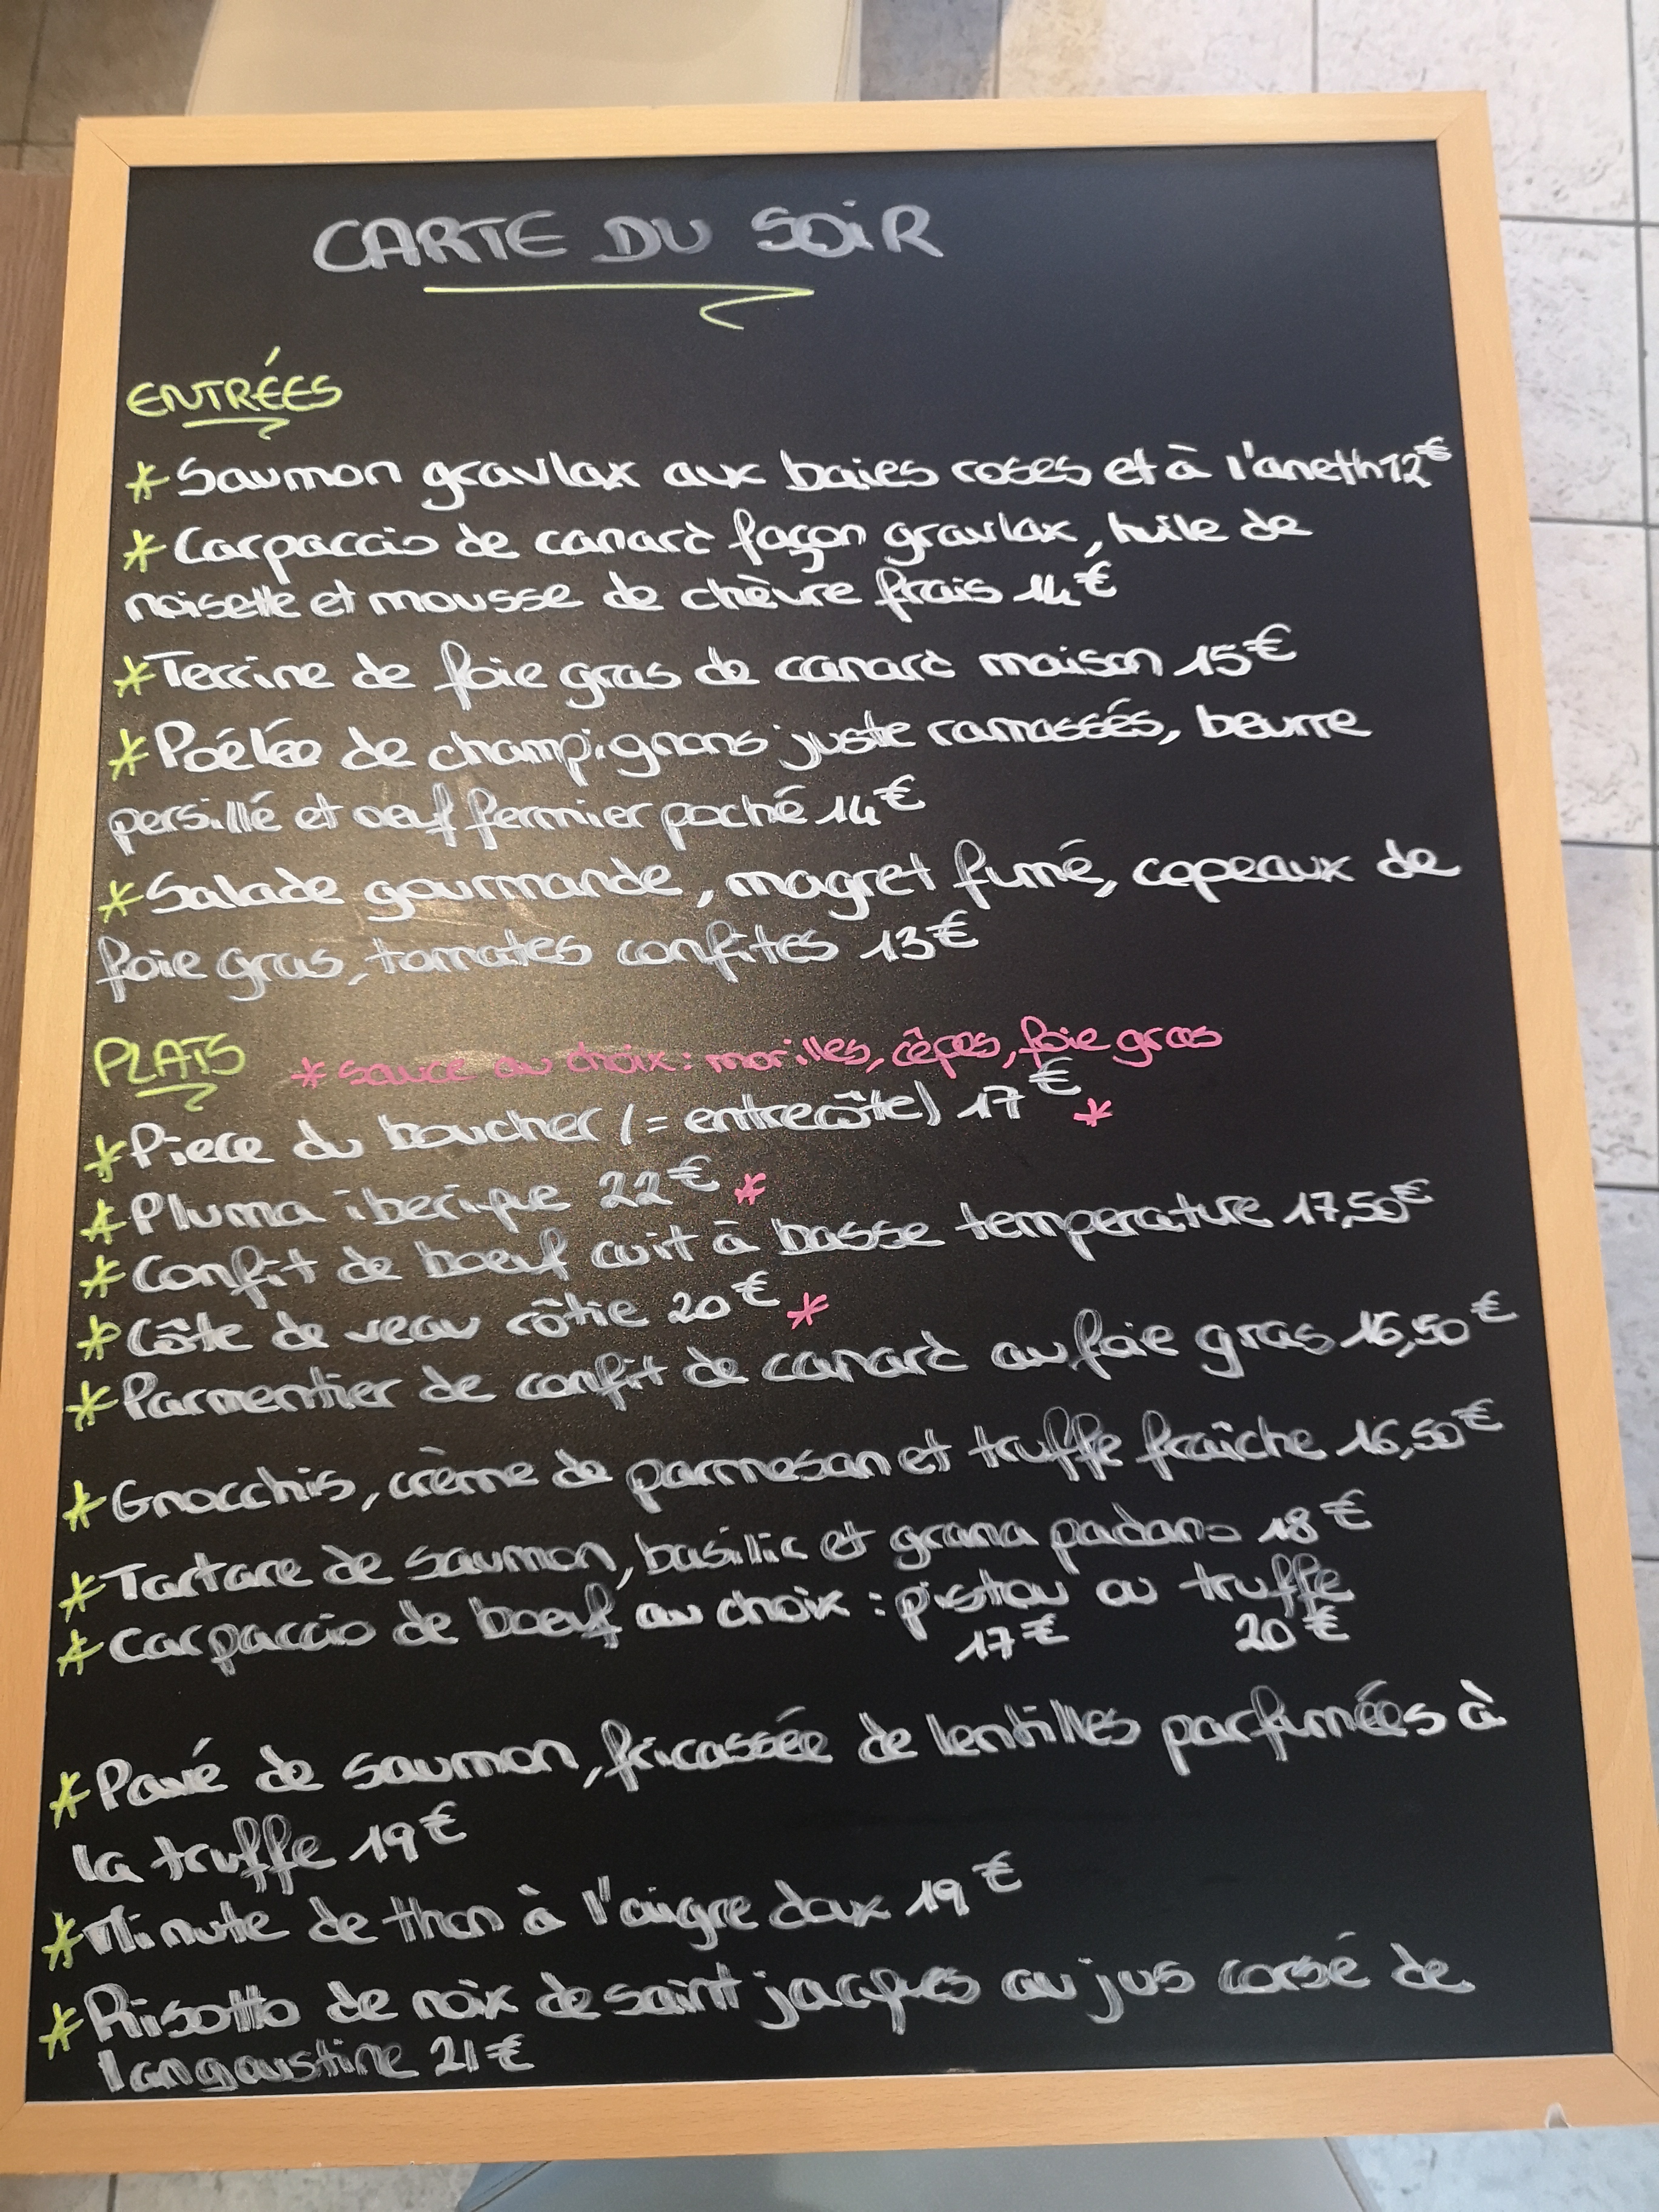 CARTE DU SOIR
ENTRÉES
* Saumon gravlax aux baies roses et à l'aneth 12€
* Carpaccio de canard façon gravlax, huile de
noisette et mousse de chèvre frais 14€
* Terrine de foie gras de canard maison 15€
* Poélée de champignons juste ramassés, beurre
persillé et oeuf fermier poché 14€
* Salade gourmande, magret fumé, copeaux de
foie gras, tomates confites 13€
PLATS * sauce au choix : morilles, cêpes, foie gras
* Piece du boucher (= entrecôte) 17€ *
* Pluma iberique 22€ *
* Confit de boeuf cuit à basse temperature 17,50€
* Côte de veau rôtie 20€ *
* Parmentier de confit de canard au foie gras 16,50€
* Gnocchis, crème de parmesan et truffe fraîche 16,50€
* Tartare de saumon, basilic et grana padano 18€
* Carpaccio de boeuf au choix : pistou ou truffe
17€ 20€
* Pavé de saumon, fricassée de lentilles parfumées à
la truffe 19€
* Minute de thon à l'aigre doux 19€
* Risotto de noix de saint jacques au jus corsé de
langoustine 21€